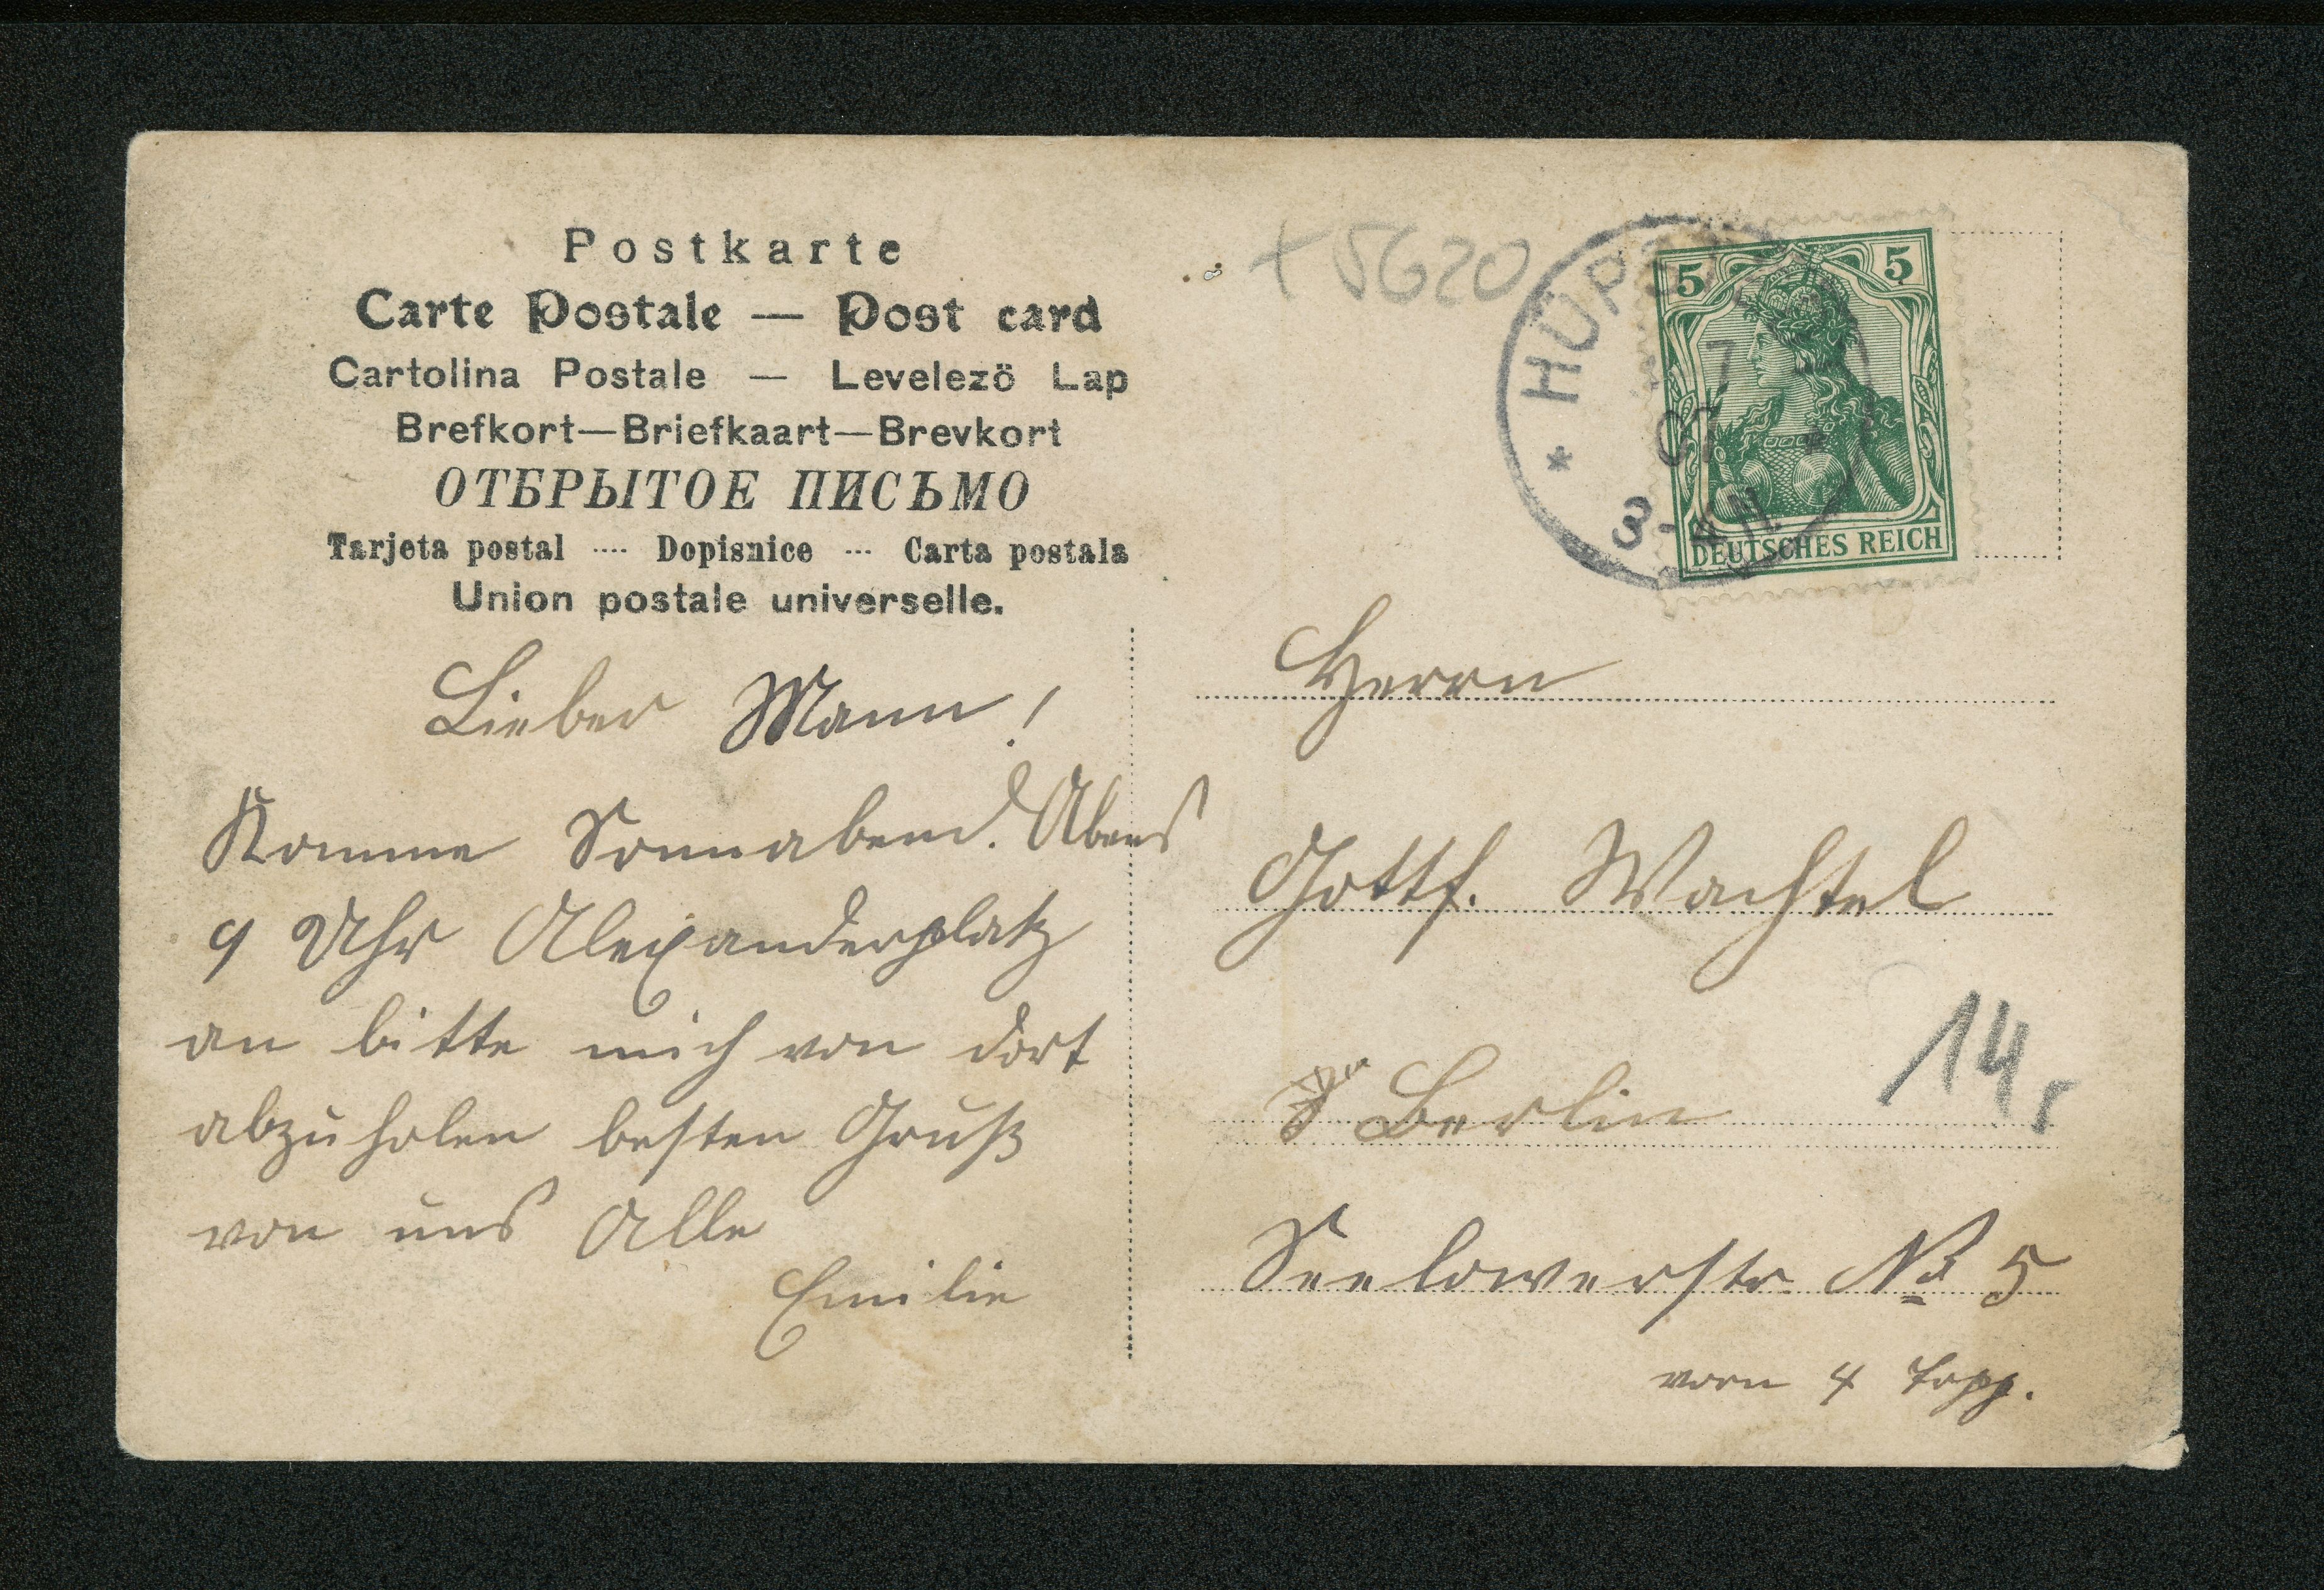 Postkarte
Carte Postale — Post card
Cartolina Postale — Levelezö Lap
Brefkort—Briefkaart—Brevkort
ОТБРЫТОЕ ПИСЬМО
Tarjeta postal ···· Dopisnice ··· Carta postala
Union postale universelle.
Lieber Mann!
Komme Sonnabend. Abens
9 Uhr Alexanderplatz
an bitte mich von dort
abzuholen besten Gruß
von uns Alle
Emilie
+ 5620
* HÜPS
7
07
3-4 N
5 5
DEUTSCHES REICH
Herrn
Gottf. Wachtel
Berlin
14
Seelowerstr. No 5
vorn 4 Trpp.